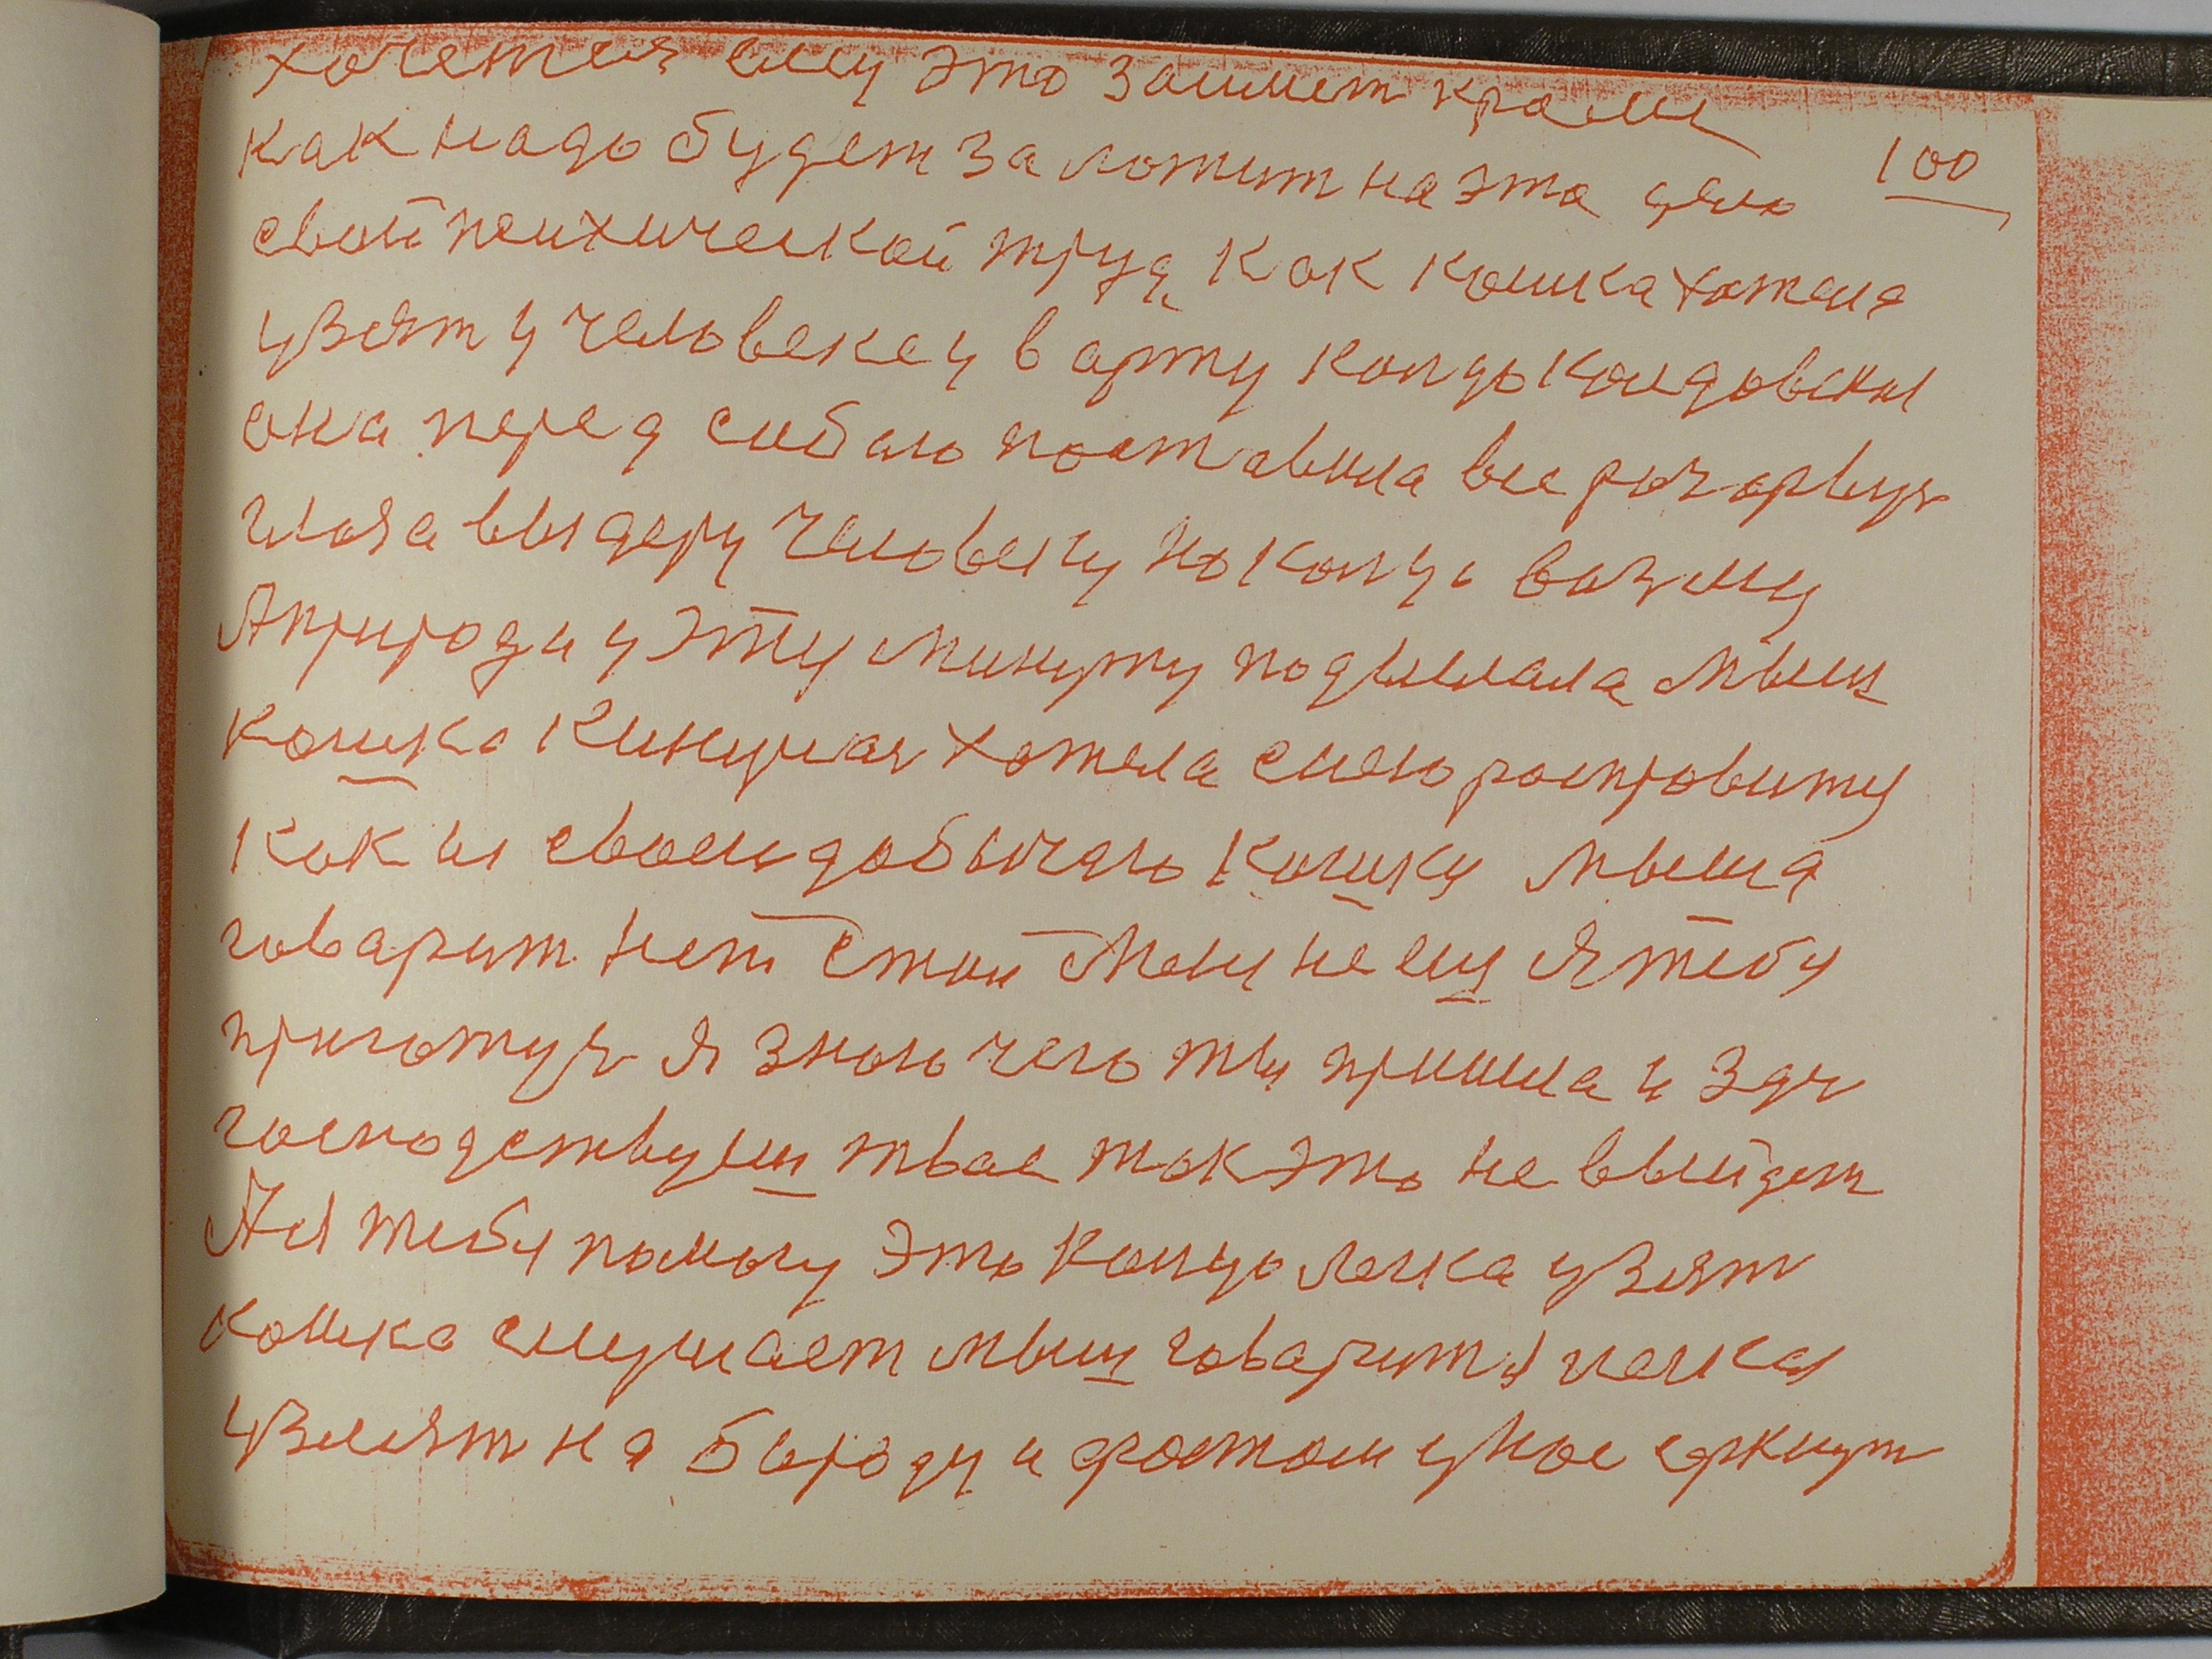 хочется ему это займет кроме
100
как надо будет заложит на это дело
свой психической труд. Как кошка хотела
узят у человека у в арту кольцо
она перед собаю поставила все расчорвую
глоза выдеру человеку но кольцо возму
А природа у эту минуту подымала мыш
кошка кинулас хотела снею роспровиту
как и своею добычяю кошку мыша
говарит нет стой мену не еш я тебу
пригожус я знаю чего ты пришла и здес
господствуиш твое ток это не выйдет
А я тебу помогу это кольцо легка узят
кошка слушает мыш говарит я легка
узлезят на бороду и фостом у нос